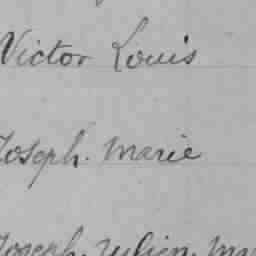 Victor Louis
Joseph. Marie
Joseph. Julien. Ma